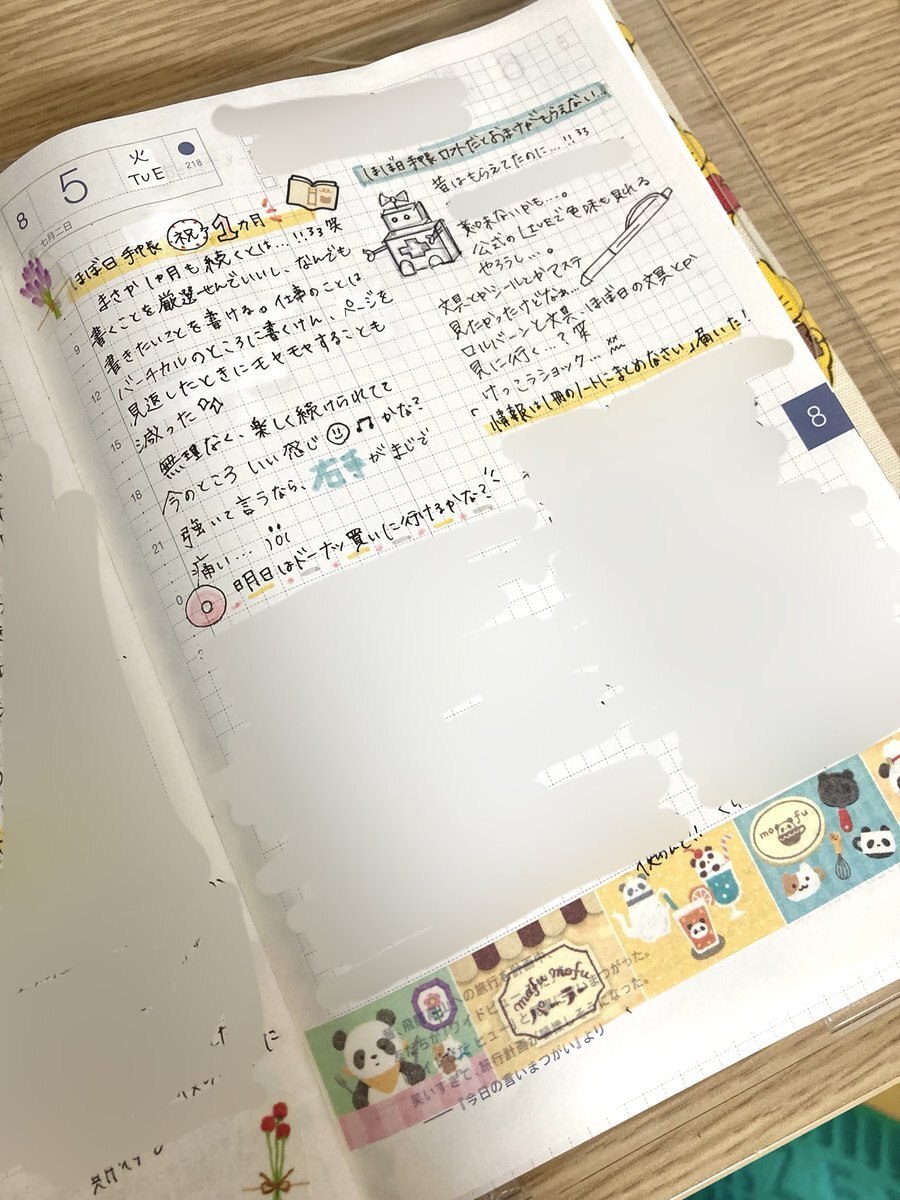 8
5
火
TUE
218
七月二日
ほぼ日手帳 祝 1カ月
まさか1ヶ月も続くとは…!!笑
書くことを厳選せんでいいし、なんでも
書きたいことを書ける。仕事のことは
バーチカルのところに書くけん、ページを
見返したときにモヤモヤすることも
減った
無理なく、楽しく続けられてて
今のところいい感じ かな?
強いて言うなら、右手がまじで
痛い…
明日はドーナツ買いに行けるかな?
9
12
15
18
21
0
ほぼ日手帳ロフトだとおまけがもらえない…
昔はもらえてたのに…!!
来ないかも…。
公式のLIVEで色味も見れる
やろうし…。
文具とかシールとかマステ
見たかったけどなぁ…
ロルバーンと文具、ほぼ日の文具とか
見に行く…?笑
けっこうショック…
「情報は1冊のノートにまとめなさい」届いた!
8
mofu
mofu mofu
パーラー
の旅行を計画中、
まつがった。
旅行計画が
なった。
笑いすぎて、
──『今日の言いまつがい』より